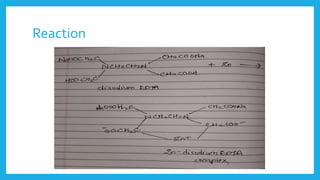 Reaction
NaOOCH₂C CH₂COONa
NCH₂CH₂N + Zn →
HOOCH₂C CH₂COOH
disodium EDTA
CH₂COONa
NCH₂CH₂N
CH₂COO⁻
Zn⁺
Zn-disodium EDTA
complex